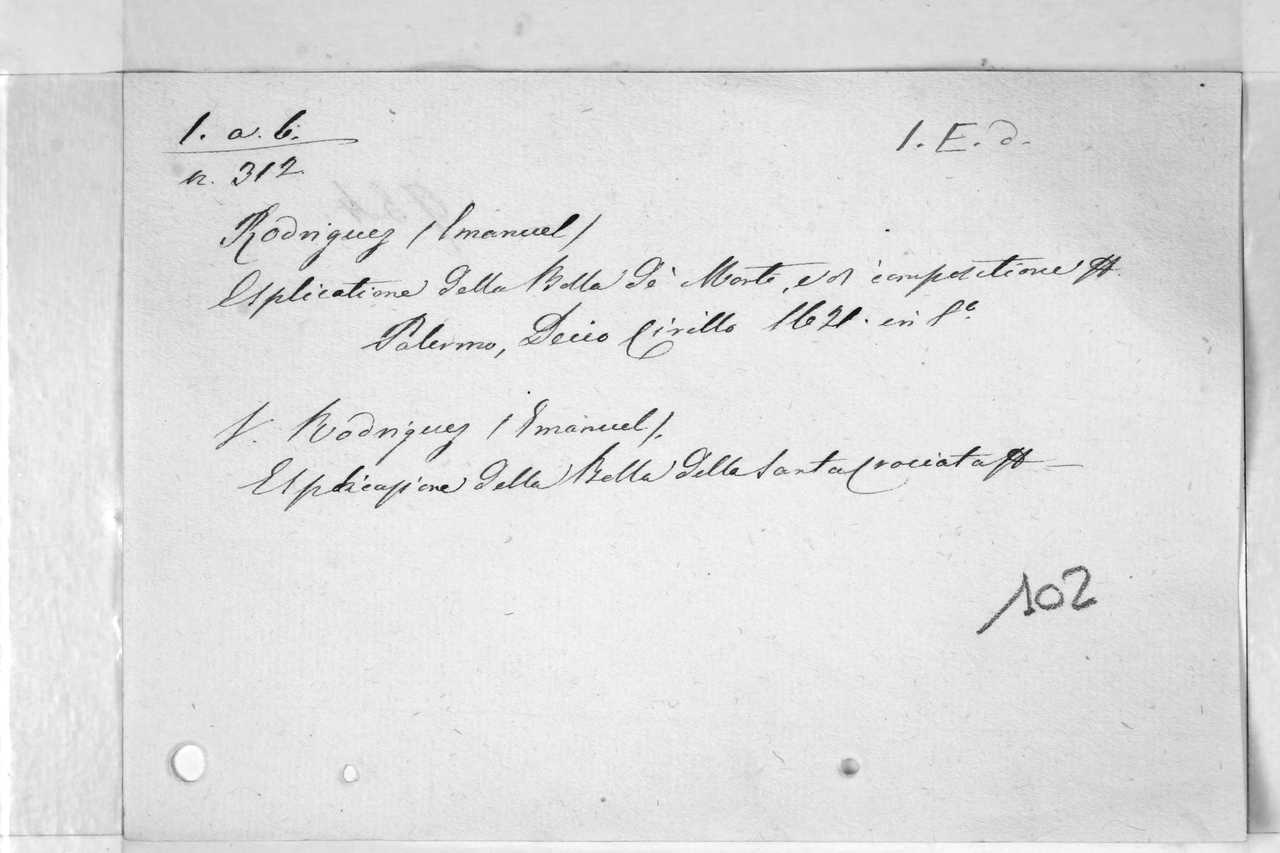 1. a. b.
n. 312.
1. E. d.
Rodriguez (Emanuel)
Esplicatione della Bolla dè Morti, e di compositione
Palermo, Decio Cirillo 1621. in 8.º
V. Rodriguez (Emanuel).
Esplicazione della Bolla della Santa Crociata
102